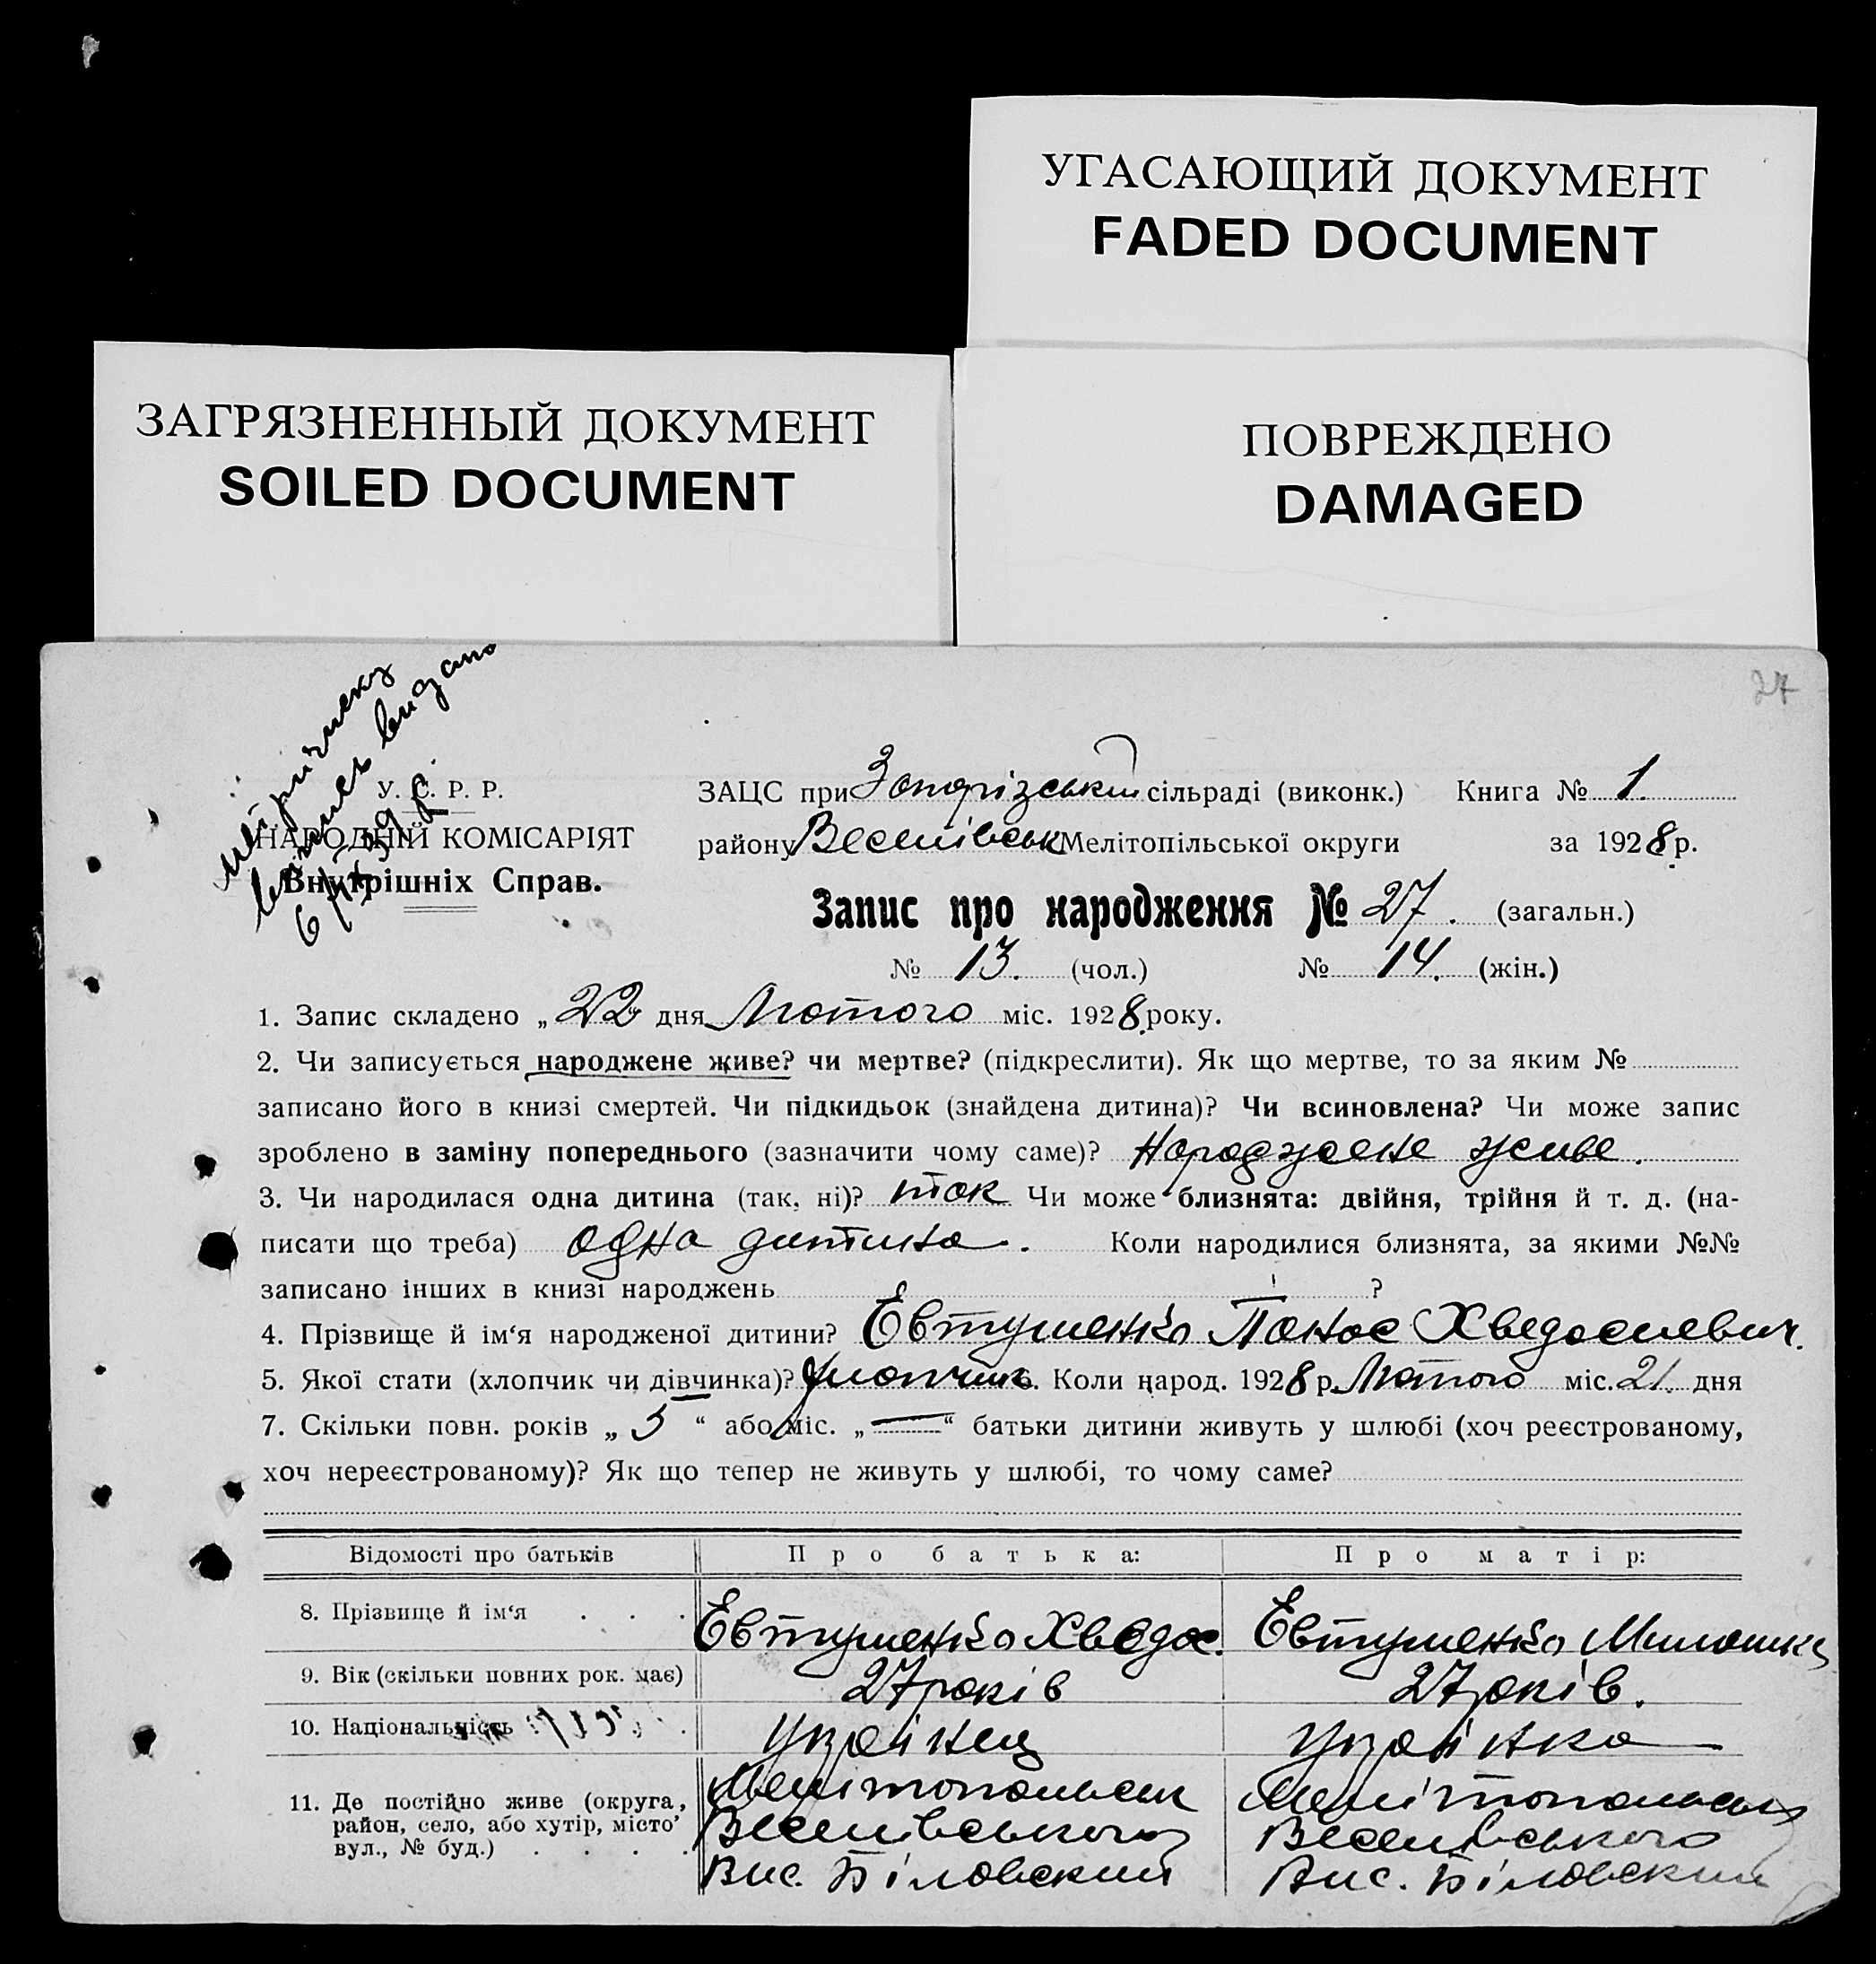 УГАСАЮЩИЙ ДОКУМЕНТ
FADED DOCUMENT
ЗАГРЯЗНЕННЫЙ ДОКУМЕНТ
SOILED DOCUMENT
ПОВРЕЖДЕНО
DAMAGED
27
метричну
виписъ видано
6/IX 39 р.
У. С. Р. Р.
НАРОДНІЙ КОМІСАРІЯТ
Внутрішніх Справ.
ЗАЦС при сільраді (виконк.) Книга № 1.
району Веселівськ Мелітопільської округи за 1928 р.
Запис про народження № 27. (загальн.)
№ 13. (чол.) № 14. (жін.)
1. Запис складено „22“ дня Лютого міс. 1928 року.
2. Чи записується народжене живе? чи мертве? (підкреслити). Як що мертве, то за яким №
записано його в книзі смертей. Чи підкидьок (знайдена дитина)? Чи всиновлена? Чи може запис
зроблено в заміну попереднього (зазначити чому саме)? Народжене живе.
3. Чи народилася одна дитина (так, ні)? так Чи може близнята: двійня, трійня й т. д. (на-
писати що треба) одна дитина. Коли народилися близнята, за якими №№
записано інших в книзі народжень ?
4. Прізвище й ім‘я народженої дитини? Евтушенко Панас Хведосиевич.
5. Якої стати (хлопчик чи дівчинка)? Хлопчик. Коли народ. 1928 р. Лютого міс. 21 дня
7. Скільки повн. років „5“ або міс. „—“ батьки дитини живуть у шлюбі (хоч реєстрованому,
хоч нереєстрованому)? Як що тепер не живуть у шлюбі, то чому саме?
Відомості про батьків Про батька: Про матір:
8. Прізвище й ім‘я . . . Евтушенко Хведос. Евтушенко
9. Вік (скільки повних рок. має) 27 років 27 років.
10. Національність Українец Українка
11. Де постійно живе (округа,
район, село, або хутір, місто’
вул., № буд.) . . . .
Мелітопольськ Мелітопольськ
Веселівського Веселівського
Вис. Біловский Вис. Біловский